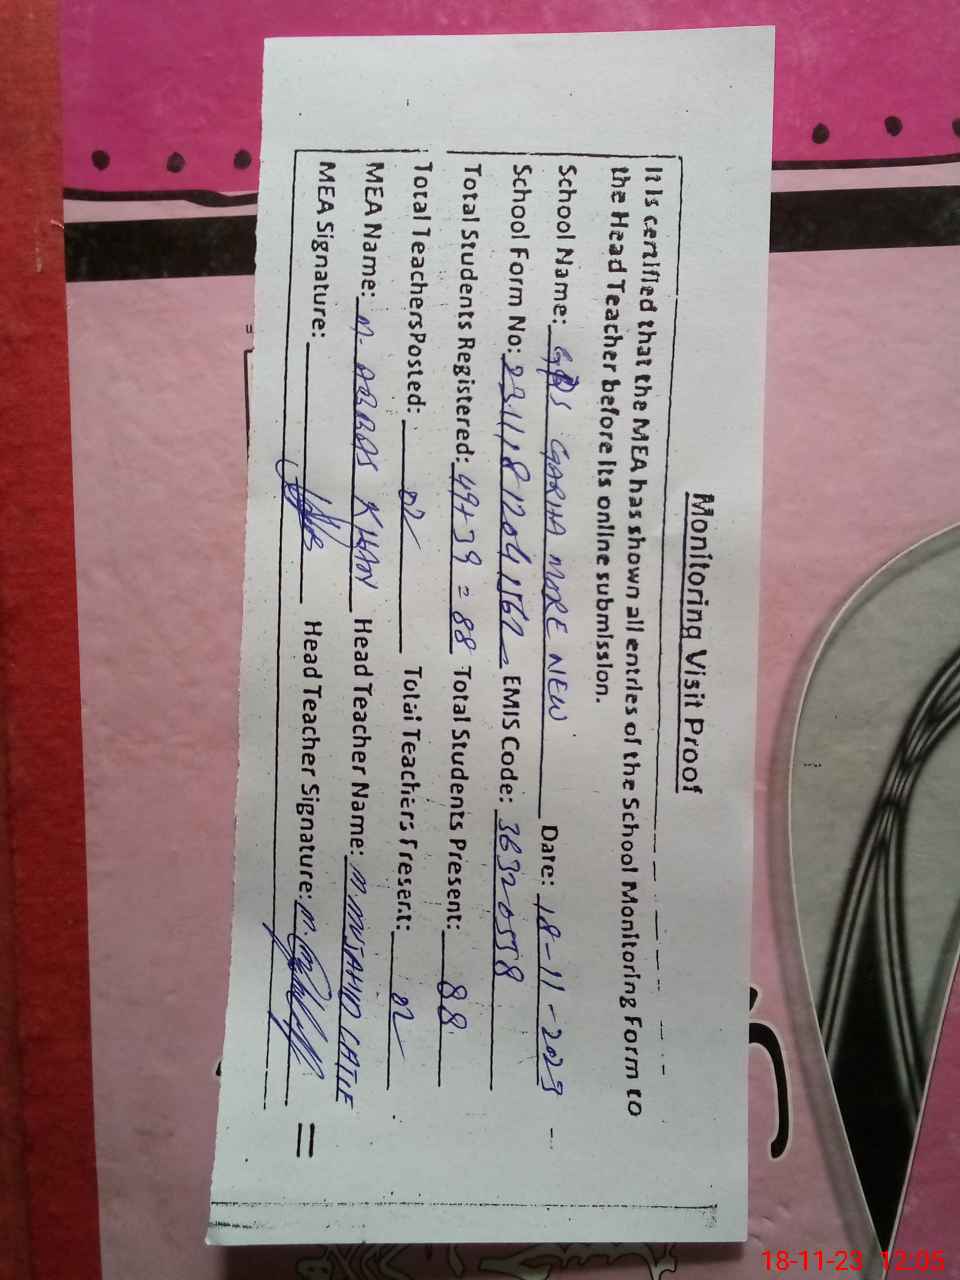 Monitoring Visit Proof
It is certified that the MEA has shown all entries of the School Monitoring Form to
the Head Teacher before its online submission.
School Name: GPS GARHA MORE NEW Date: 18-11-2023
School Form No: EMIS Code: 36320558
Total Students Registered: 49+39=88 Total Students Present: 88
Total Teachers Posted: 02 Total Teachers Present: 02
MEA Name: M. ABBAS KHAN Head Teacher Name: M. MUJAHID LATIF
MEA Signature: Head Teacher Signature:
18-11-23 12:05